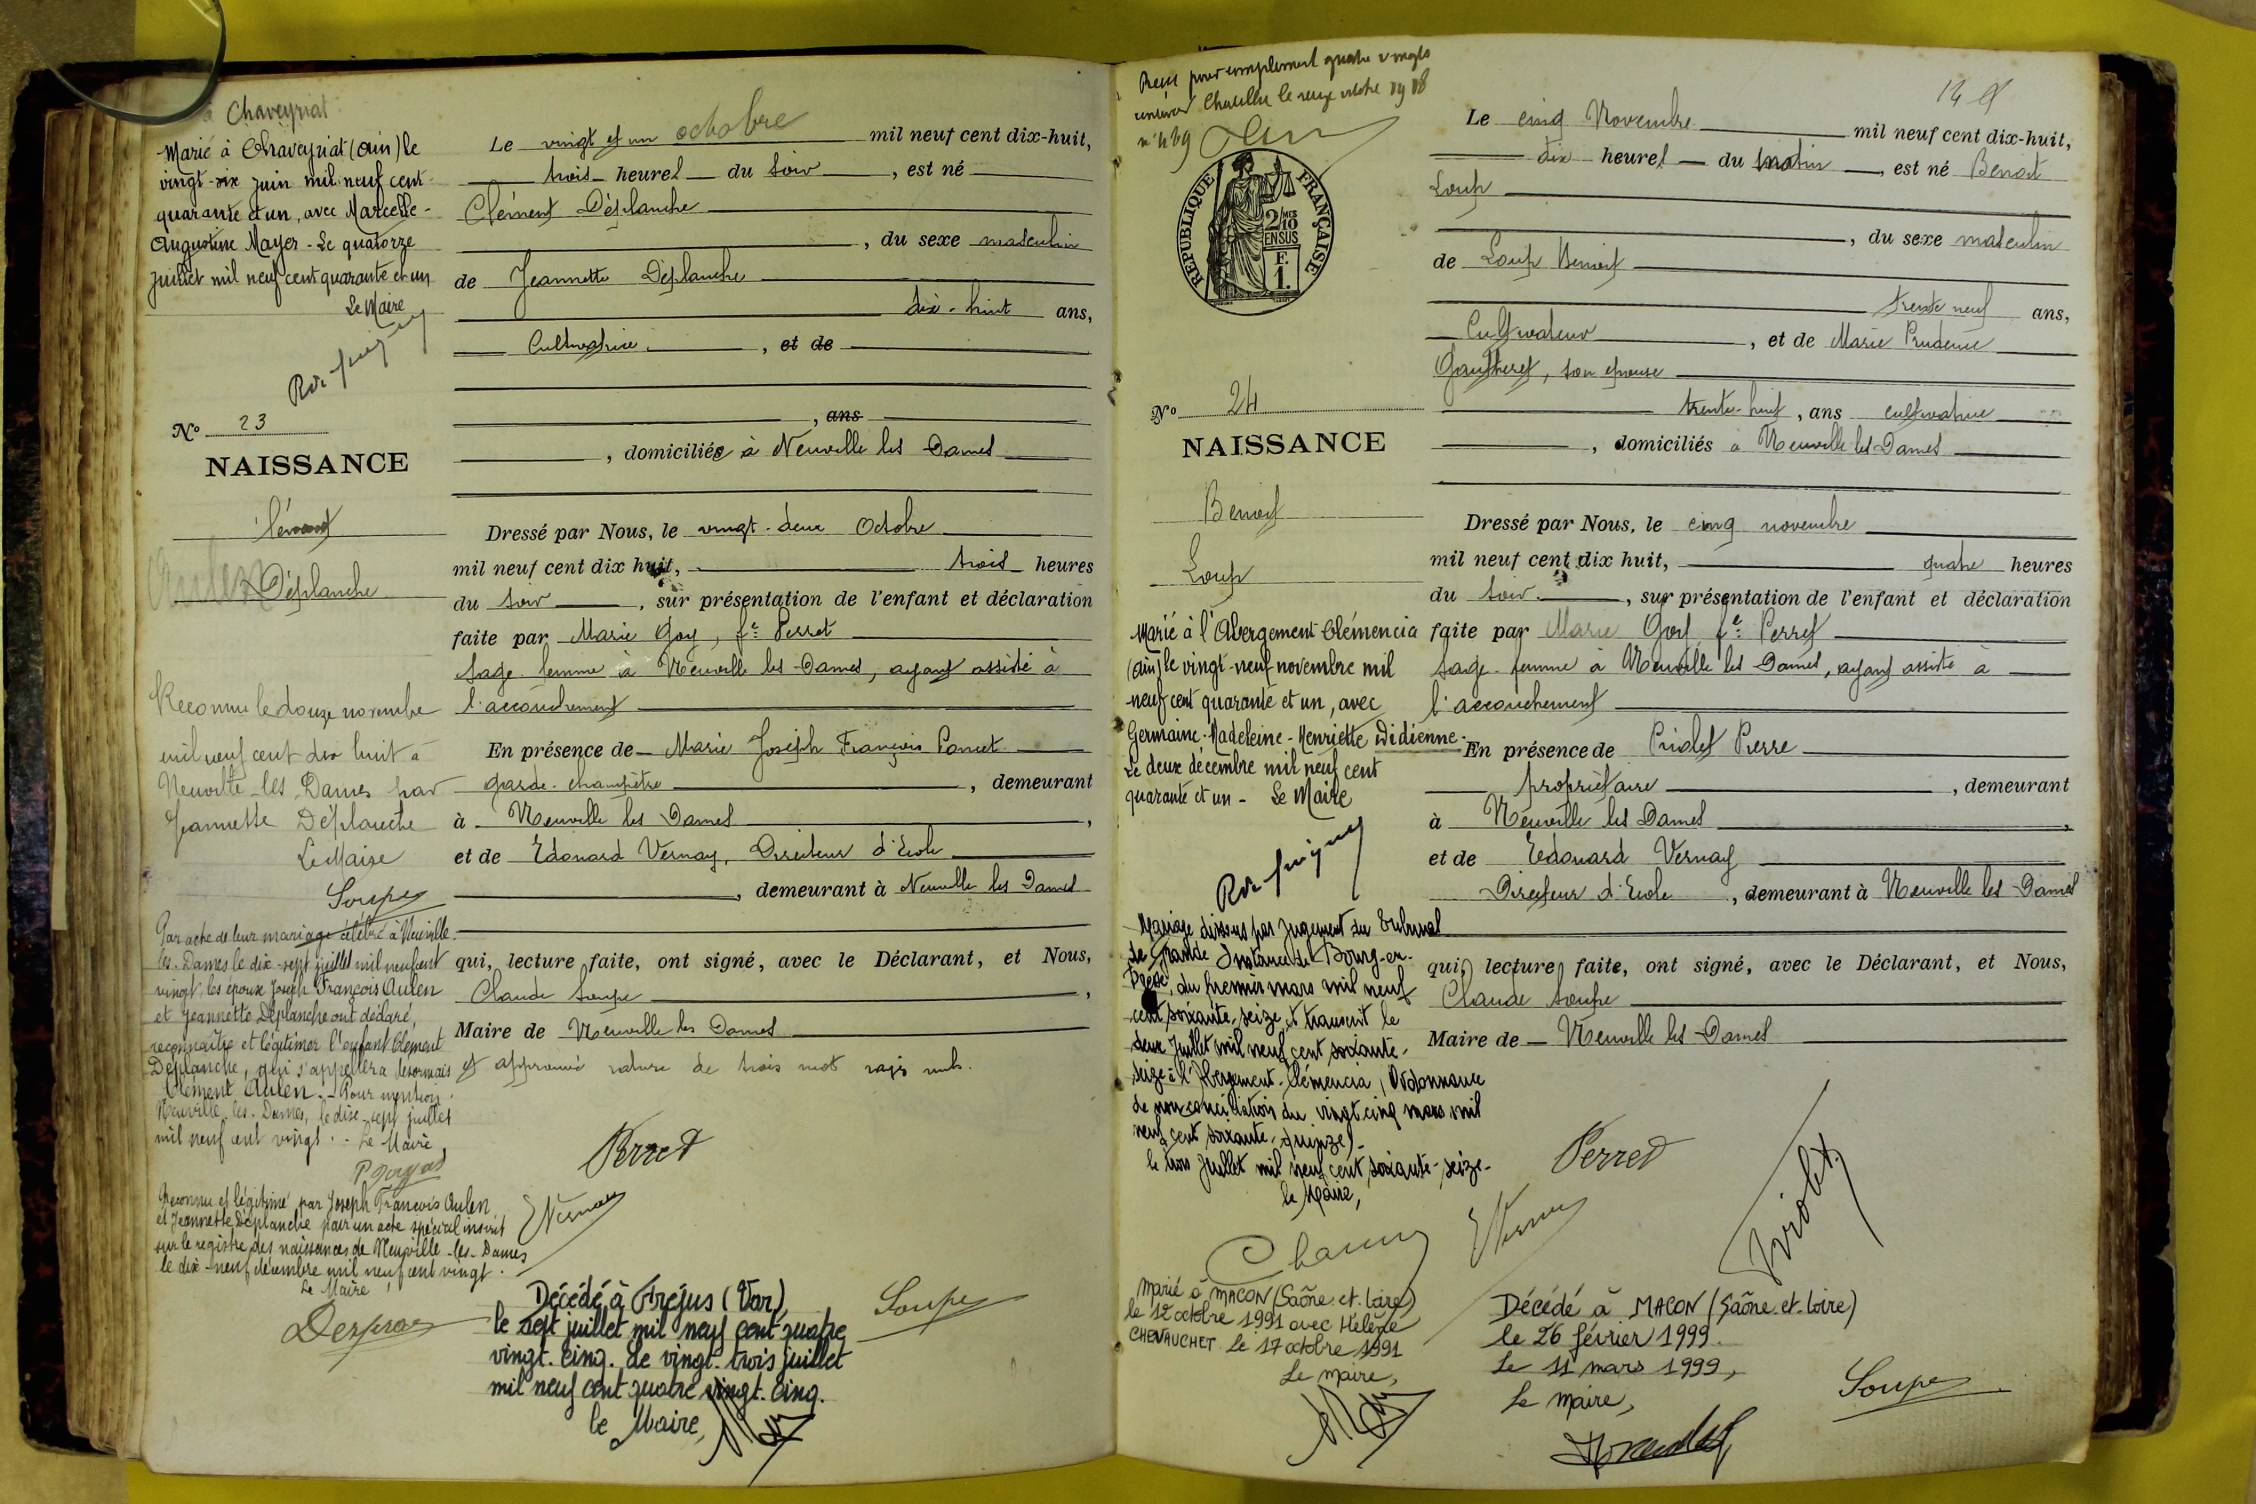 à Chaveyriat
Marié à Chaveyriat (Ain) le
vingt-six juin mil neuf cent
quarante et un, avec Marcelle-
Augustine Mayer - Le quatorze
juillet mil neuf cent quarante et un
Le Maire
N° 23
NAISSANCE
Clément
Déplanche
Reconnu le douze novembre
mil neuf cent dix huit à
Neuville-les-Dames par
Jeannette Déplanche
Le Maire
Soupe
Par acte de leur mariage célébré à Neuville-
les-Dames le dix-sept juillet mil neuf cent
vingt, les époux Joseph François Aulen
et Jeannette Déplanche ont déclaré,
reconnaître et légitimer l'enfant Clément
Déplanche, qui s'appellera désormais
Clément Aulen. - Pour mention.
Neuville-les-Dames, le dix-sept juillet
mil neuf cent vingt. - Le Maire,
Reconnu et légitimé par Joseph François Aulen
et Jeannette Déplanche par un acte spécial inscrit
sur le registre des naissances de Neuville-les-Dames
le dix-neuf décembre mil neuf cent vingt.
Le Maire,
Le vingt et un octobre mil neuf cent dix-huit,
trois heures du soir, est né
Clément Déplanche
, du sexe masculin
de Jeannette Déplanche
dix-huit ans,
Cultivatrice, et de
, ans
, domiciliée à Neuville les Dames
Dressé par Nous, le vingt-deux Octobre
mil neuf cent dix huit, trois heures
du soir, sur présentation de l'enfant et déclaration
faite par Marie Goy, fe Perret
sage-femme à Neuville les Dames, ayant assisté à
l'accouchement
En présence de Marie Joseph François Poncet
garde-champêtre, demeurant
à Neuville les Dames,
et de Edouard Vernay, Directeur d'Ecole
, demeurant à Neuville les Dames
qui, lecture faite, ont signé, avec le Déclarant, et Nous,
Claude Soupe,
Maire de Neuville les Dames
et approuvé rature de trois mots rayés nuls.
Perret
Vernay
Soupe
Décédé à Fréjus (Var)
le sept juillet mil neuf cent quatre
vingt-cinq. Le vingt-trois juillet
mil neuf cent quatre vingt-cinq.
le Maire,
Reçu pour complément quatre vingts
n° 439
RÉPUBLIQUE FRANÇAISE
2/10 MES
EN SUS
F.
1.
N° 24
NAISSANCE
Benoit
Loup
Marié à l'Abergement Clémencia
(Ain) le vingt-neuf novembre mil
neuf cent quarante et un, avec
Germaine-Madeleine-Henriette Didienne.
Le deux décembre mil neuf cent
quarante et un - Le Maire
Mariage dissous par Jugement du Tribunal
de Grande Instance de Bourg-en-
Bresse, du premier mars mil neuf
cent soixante-seize, et transcrit le
deux Juillet mil neuf cent soixante-
seize à l'Abergement-Clémencia, (Ordonnance
de non conciliation du vingt cinq mars mil
neuf cent soixante-quinze).
le trois Juillet mil neuf cent soixante-seize-
le Maire,
Marié à MACON (Saône et Loire)
le 12 octobre 1991 avec Hélène
CHEVAUCHET. Le 17 octobre 1991
Le maire,
Le cinq Novembre mil neuf cent dix-huit,
dix heures du matin, est né Benoit
Loup
, du sexe masculin
de Loup Benoit
trente neuf ans,
Cultivateur, et de Marie Prudence
Gautheret, son épouse
trente-huit, ans cultivatrice
, domiciliés à Neuville les Dames
Dressé par Nous, le cinq novembre
mil neuf cent dix huit, quatre heures
du soir, sur présentation de l'enfant et déclaration
faite par Marie Goy fe Perret
sage-femme à Neuville les Dames, ayant assisté à
l'accouchement
En présence de Pierre
propriétaire, demeurant
à Neuville les Dames,
et de Edouard Vernay
Directeur d'Ecole, demeurant à Neuville les Dames
qui, lecture faite, ont signé, avec le Déclarant, et Nous,
Claude Soupe
Maire de Neuville les Dames
Perret
Vernay
Décédé à MACON (Saône et Loire)
le 26 février 1999.
Le 11 mars 1999,
Le maire,
Soupe